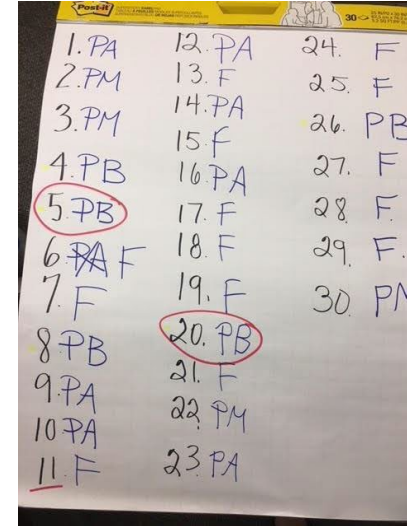 Post-it
30
1. PA
2. PM
3. PM
4. PB
5. PB
6. PA F
7. F
8. PB
9. PA
10 PA
11. F
12. PA
13. F
14. PA
15. F
16. PA
17. F
18. F
19. F
20. PB
21. F
22. PM
23. PA
24. F
25. F
26. PB
27. F
28. F
29. F.
30. PM